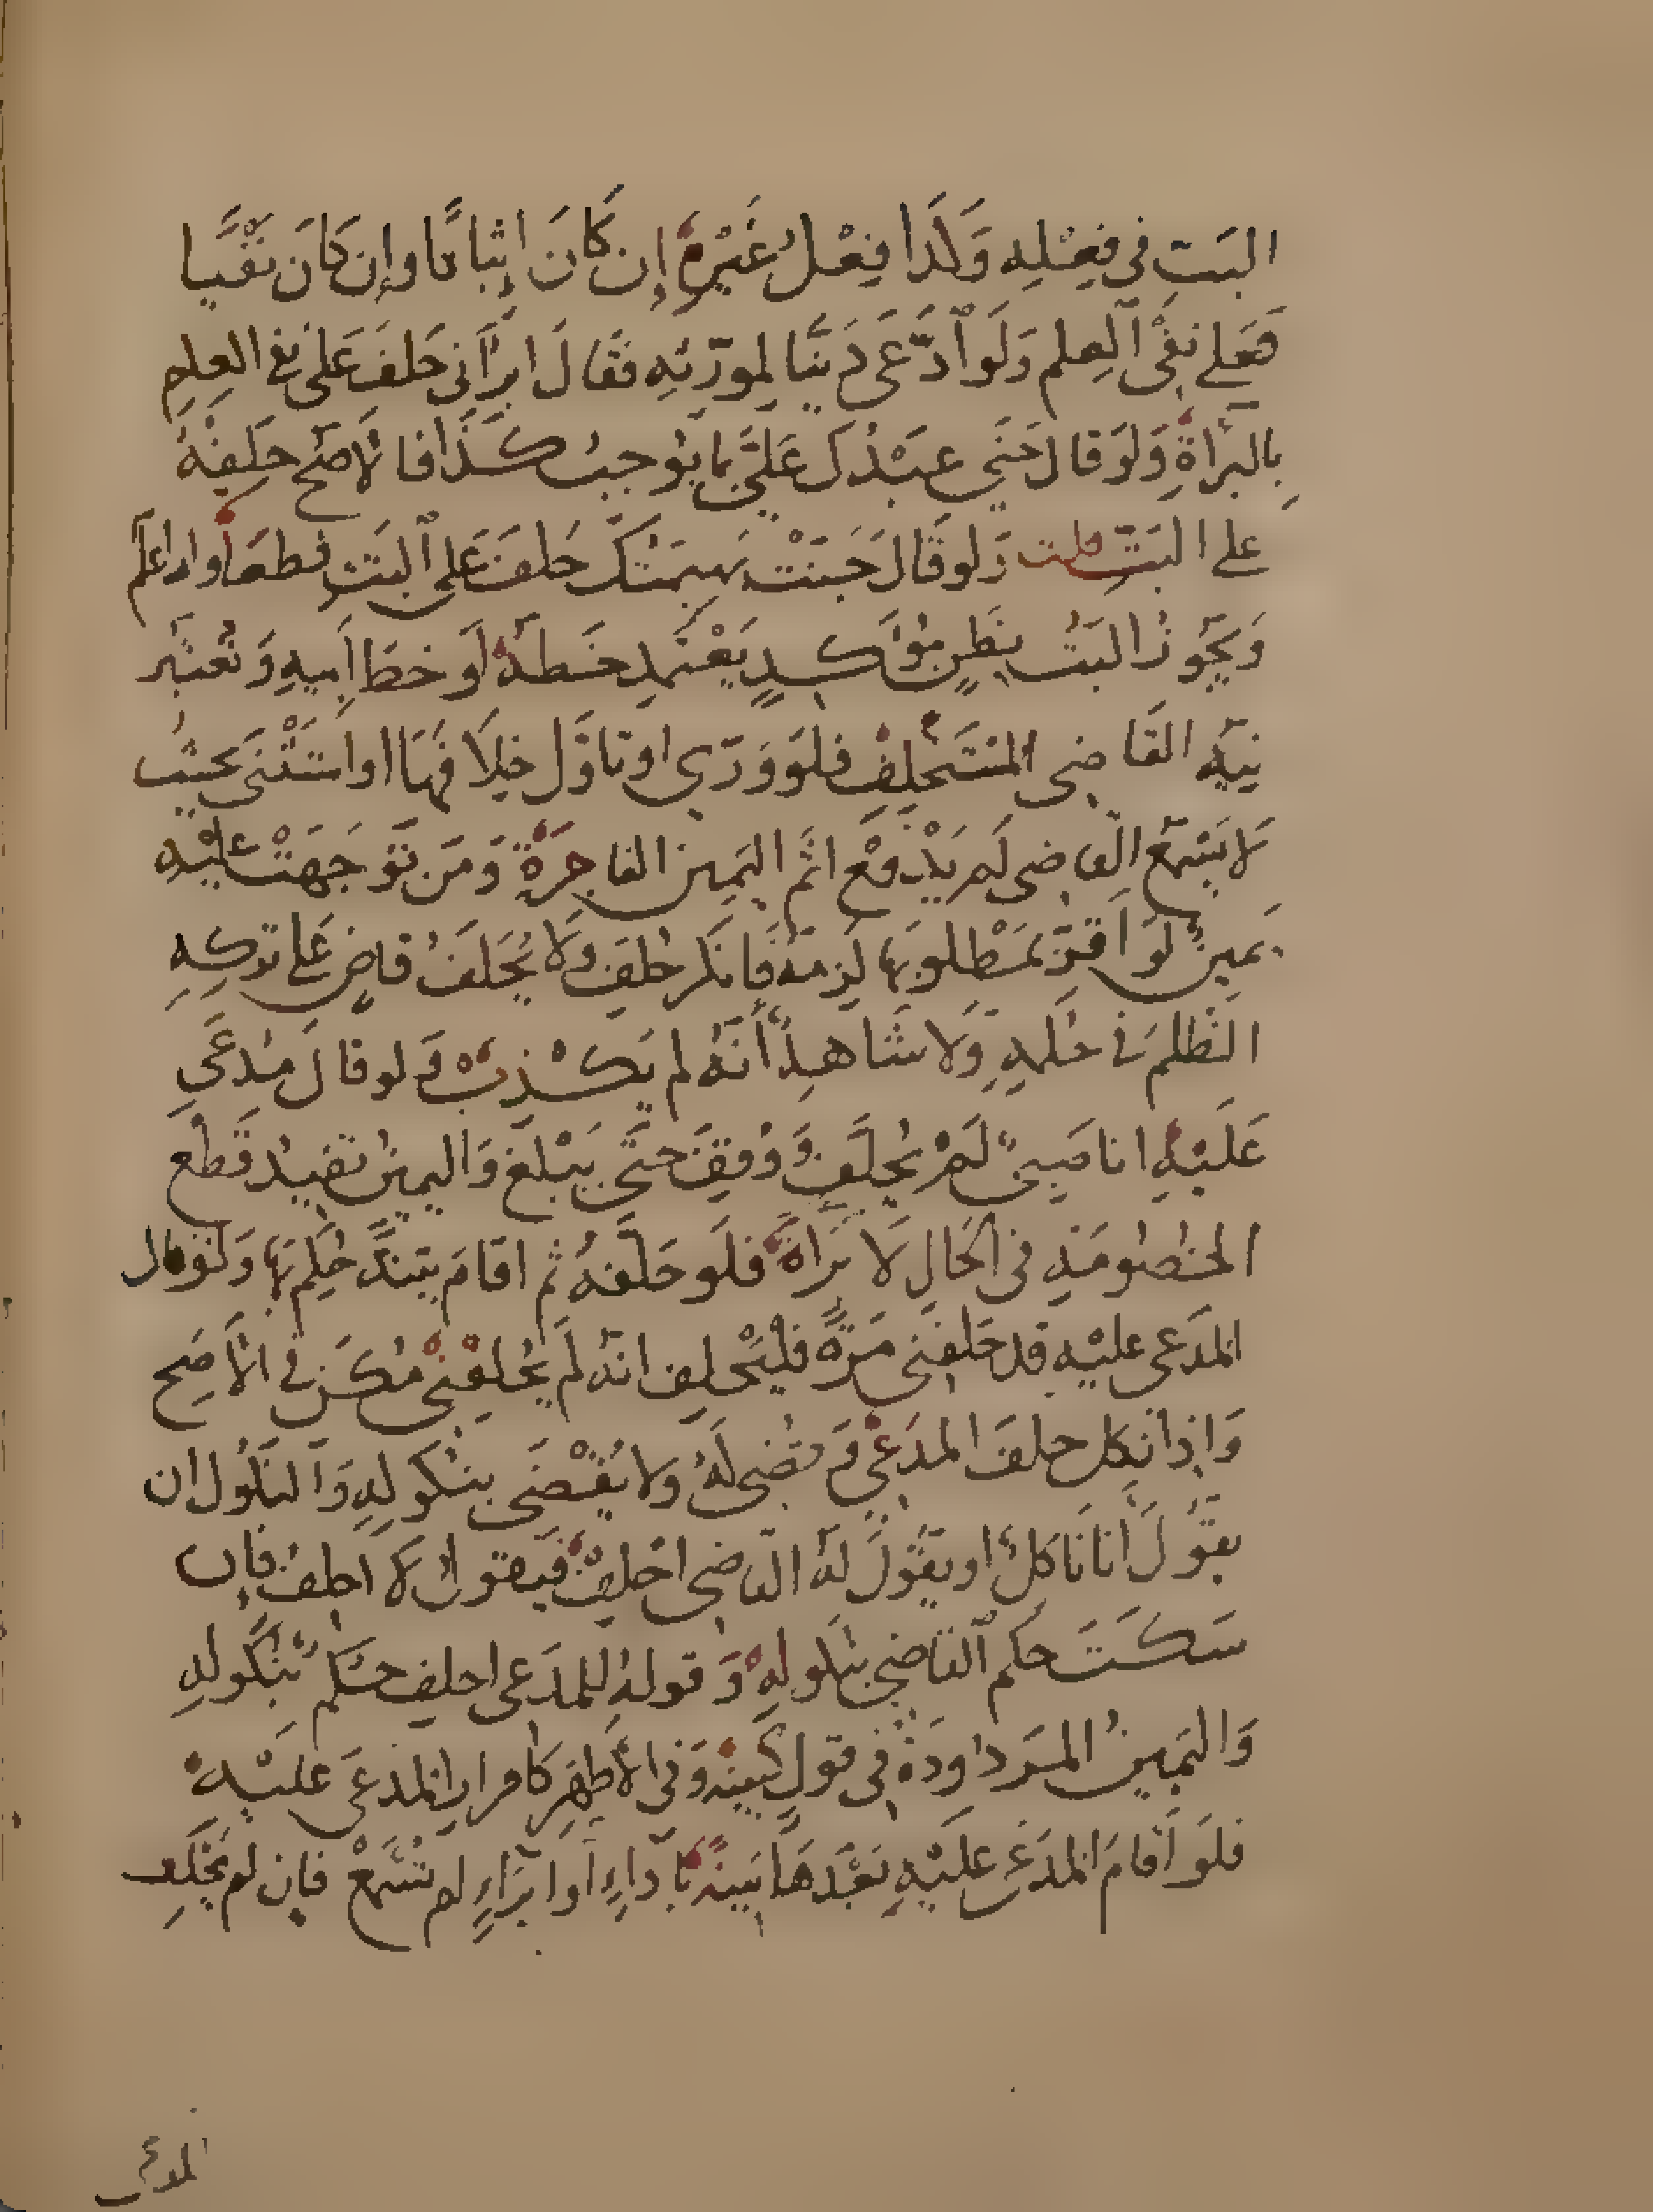 البَت في فِعْلِه وَكَذا فِعْلُ غَيْرِهِ إِن كَانَ إِثباتًا وإِن كَانَ نَفْيًا
فَعَلى نَفْي ٱلعِلم وَلَو ٱدَّعَى دَيْنًا لِموَرِّثِهِ فقَالَ ابرَأَنى حَلَفَ عَلى نفي العِلمِ
بِالبَرأةِ وَلَوْ قالَ جَنَى عبْدُكَ عَلَيَّ بِما يُوجبُ كَذَا فالأصَحُّ حَلِفهُ
على البَتّ قلت وَلو قَالَ جَنَتْ بَهيمَتُكَ حَلَفَ عَلى ٱلبَتِّ قطعًا والله اعلم
وَيَجُوزُ البَتُّ بِظَنٍّ مُؤَكَّدٍ يَعْتَمِد خَطهُ أَو خطَ أَبِيهِ وَتُعْتَبَر
نِيَّة القَاضِى المُسْتَحْلِفِ فلَوْ وَرَّى او تاوَّل خِلَافَهَا اواسْتَثْنَى بحَيْثُ
لَا يَسْمَع القاضِى لَمْ يَدْفَعْ اثْمَ اليَمِين الفاجرَةِ وَمَن تَوَجَهَتْ عَليْهِ
يَمينٌ لَوْ اَقرَّ بمَطْلوبِها لَزِمَهُ فَانكَر حُلِفَ وَلَا يُحَلَفُ قاضٍ عَلى تركِهِ
الظُلمَ في حُكمِهِ وَلا شَاهِدٌ أَنَّهُ لم يَكْذِبْ وَلو قالَ مُدعَى
عَلَيْهِ انا صَبِىٌّ لَمْ يُحَلَّفْ وَوُقِفَ حَتَّى يَبْلغَ وَاليمينُ تفيدُ قَطْعَ
الخُصُومَةِ في الحَالِ لَا بَرَاةً فَلَو حَلَّفهُ ثم اقامَ بَيّنَةً حُكِمَ بِهَا وَلَوْ قال
المُدَعى عليْهِ قد حَلفَنى مَرَّةً فَليَحْلِف انهُ لَم يُحَلِفْنِى مُكِّنَ في الأَصَح
وَإِذا نَكل حلفَ المدَعِى وَقُضِىَ لَهُ ولا يُقْضَى بِنُكولِهِ وَالنكُول ان
يقُولَ أَنا نَاكلٌ او يَقُولَ لَهُ القاضِى احْلِفْ فَيَقول لَا احلفُ فإن
سَكَتَ حكم ٱلقَاضِى بنكولِهِ وَقولُهُ لِلمدَعى احلف حُكْم بُنكُولهِ
وَاليَمِينُ المَردودَةُ في قولٍ كَبَينةٍ وَفي الأظهَرِ كاقرارِ المدعَى عليْهِ
فلَو أَقَامَ المدَعَى عَلَيْهِ بَعْدَهَا بَينَةً بِأَدَاءٍ أَو ابرَاءٍ لم تُسْمَعْ فإن لم يَحْلِف
المدعى